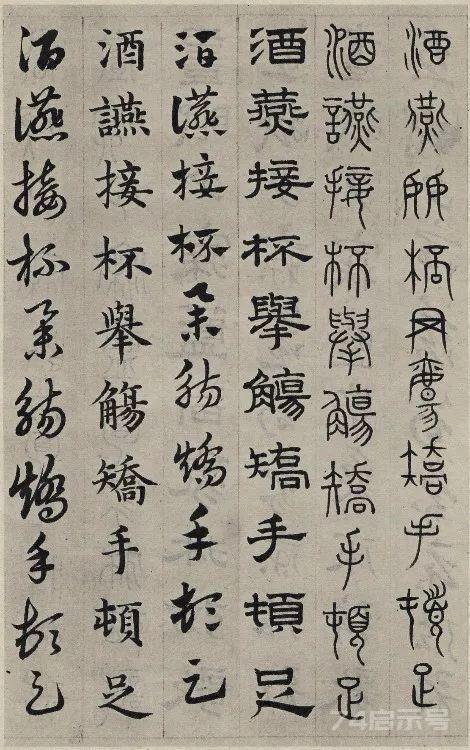 酒燕接桮舉觴矯手頓足
酒讌接杯舉觴矯手頓足
酒燕接杯舉觴矯手頓足
酒讌接杯舉觴矯手頓足
酒讌接杯舉觴矯手頓足
酒讌接杯舉觴矯手頓足
74启示号